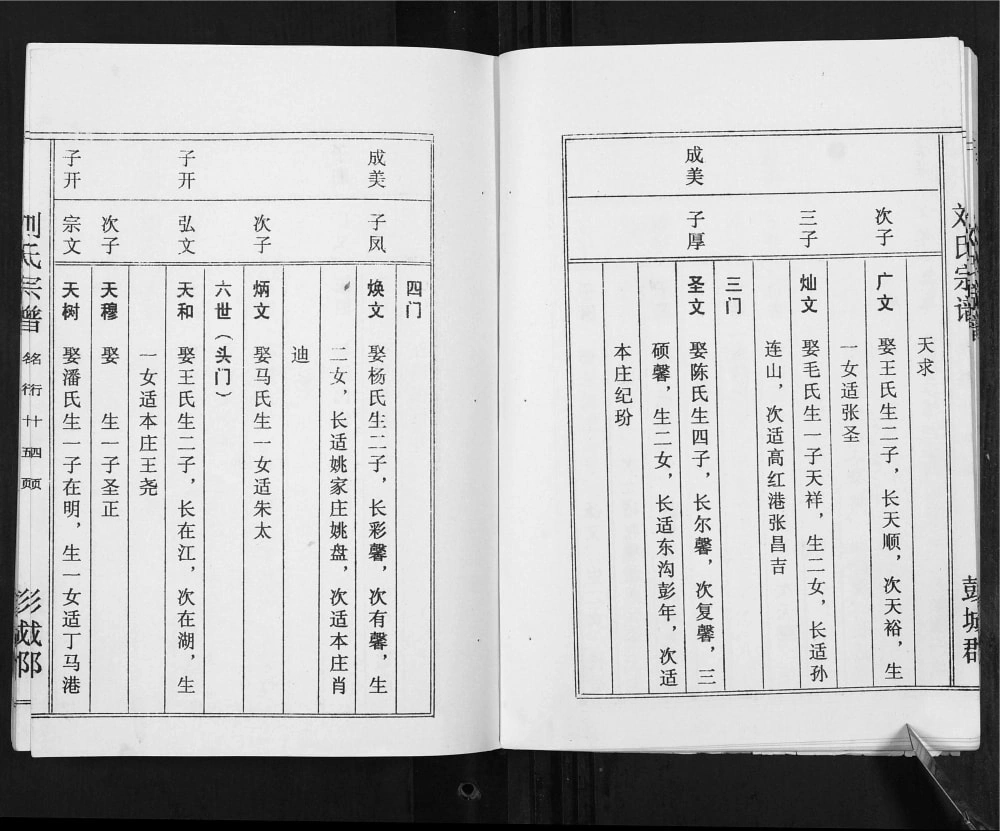 刘氏宗谱
彭城群
天求
次子
广文 娶王氏生二子，长天顺，次天裕，生
一女适张圣
三子
灿文 娶毛氏生一子天祥，生二女，长适孙
连山，次适高红港张昌吉
三门
成美
子厚
圣文 娶陈氏生四子，长尔馨，次复馨，三
硕馨，生二女，长适东沟彭年，次适
本庄纪玢
四门
成美
子凤
焕文 娶杨氏生二子，长彩馨，次有馨，生
二女，长适姚家庄姚盘，次适本庄肖
迪
次子
炳文 娶马氏生一女适朱太
六世（头门）
子开
弘文
天和 娶王氏生二子，长在江，次在湖，生
一女适本庄王尧
次子
天穆 娶 生一子圣正
子开
宗文
天树 娶潘氏生一子在明，生一女适丁马港
刘氏宗谱